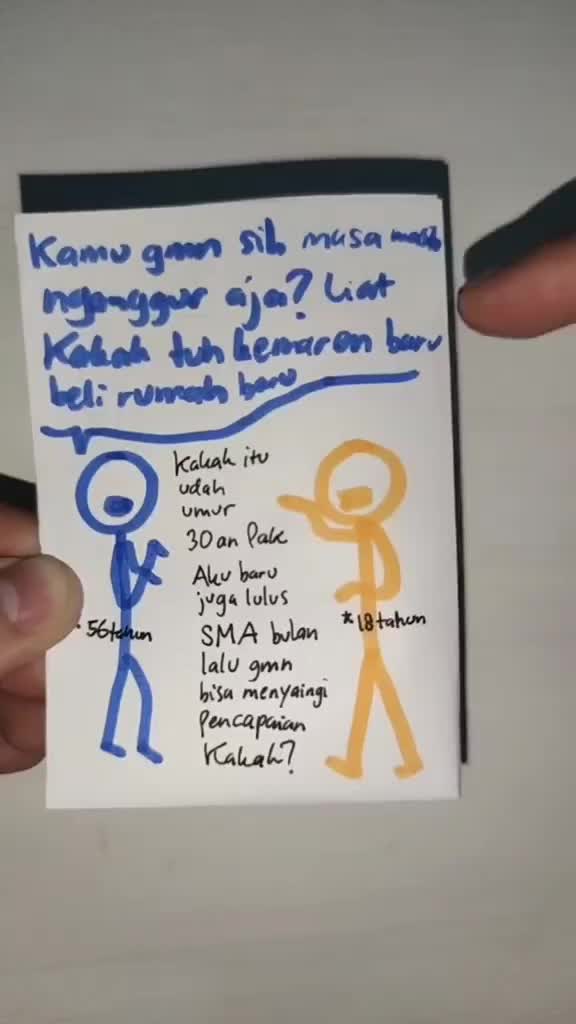 Kamu gmn sih masa masih
nganggur aja? Liat
Kakak tuh kemaren baru
beli rumah baru
Kakak itu
udah
umur
30an Pak
Aku baru
juga lulus
SMA bulan
lalu gmn
bisa menyaingi
Pencapaian
Kakak?
*56tahun
*18tahun